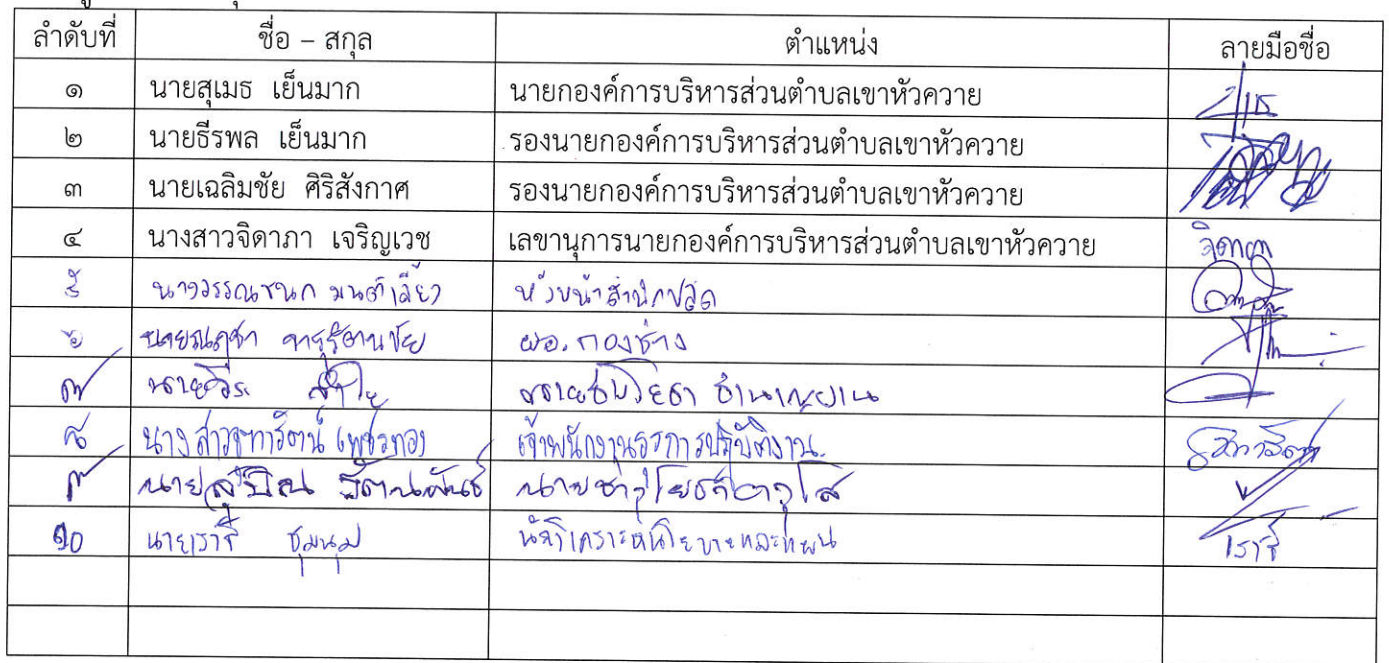 ลำดับที่ ชื่อ – สกุล ตำแหน่ง ลายมือชื่อ
๑ นายสุเมธ เย็นมาก นายกองค์การบริหารส่วนตำบลเขาหัวควาย
๒ นายธีรพล เย็นมาก รองนายกองค์การบริหารส่วนตำบลเขาหัวควาย
๓ นายเฉลิมชัย ศิริสังกาศ รองนายกองค์การบริหารส่วนตำบลเขาหัวควาย
๔ นางสาวจิดาภา เจริญเวช เลขานุการนายกองค์การบริหารส่วนตำบลเขาหัวควาย จิดาภา
๕ นางวรรณชนก มนต์เฉียง หัวหน้าสำนักปลัด
๖ ผอ.กองช่าง
๗ นายวีระ นายช่างโยธา ชำนาญงาน
๘ นางสาวจุฑารัตน์ เพชรทอง เจ้าพนักงานธุรการปฏิบัติงาน
๙ นายสุบิณ รัตนพันธ์
๑๐ นายเราซี ชุมนุม นักวิเคราะห์นโยบายและแผน เราซี